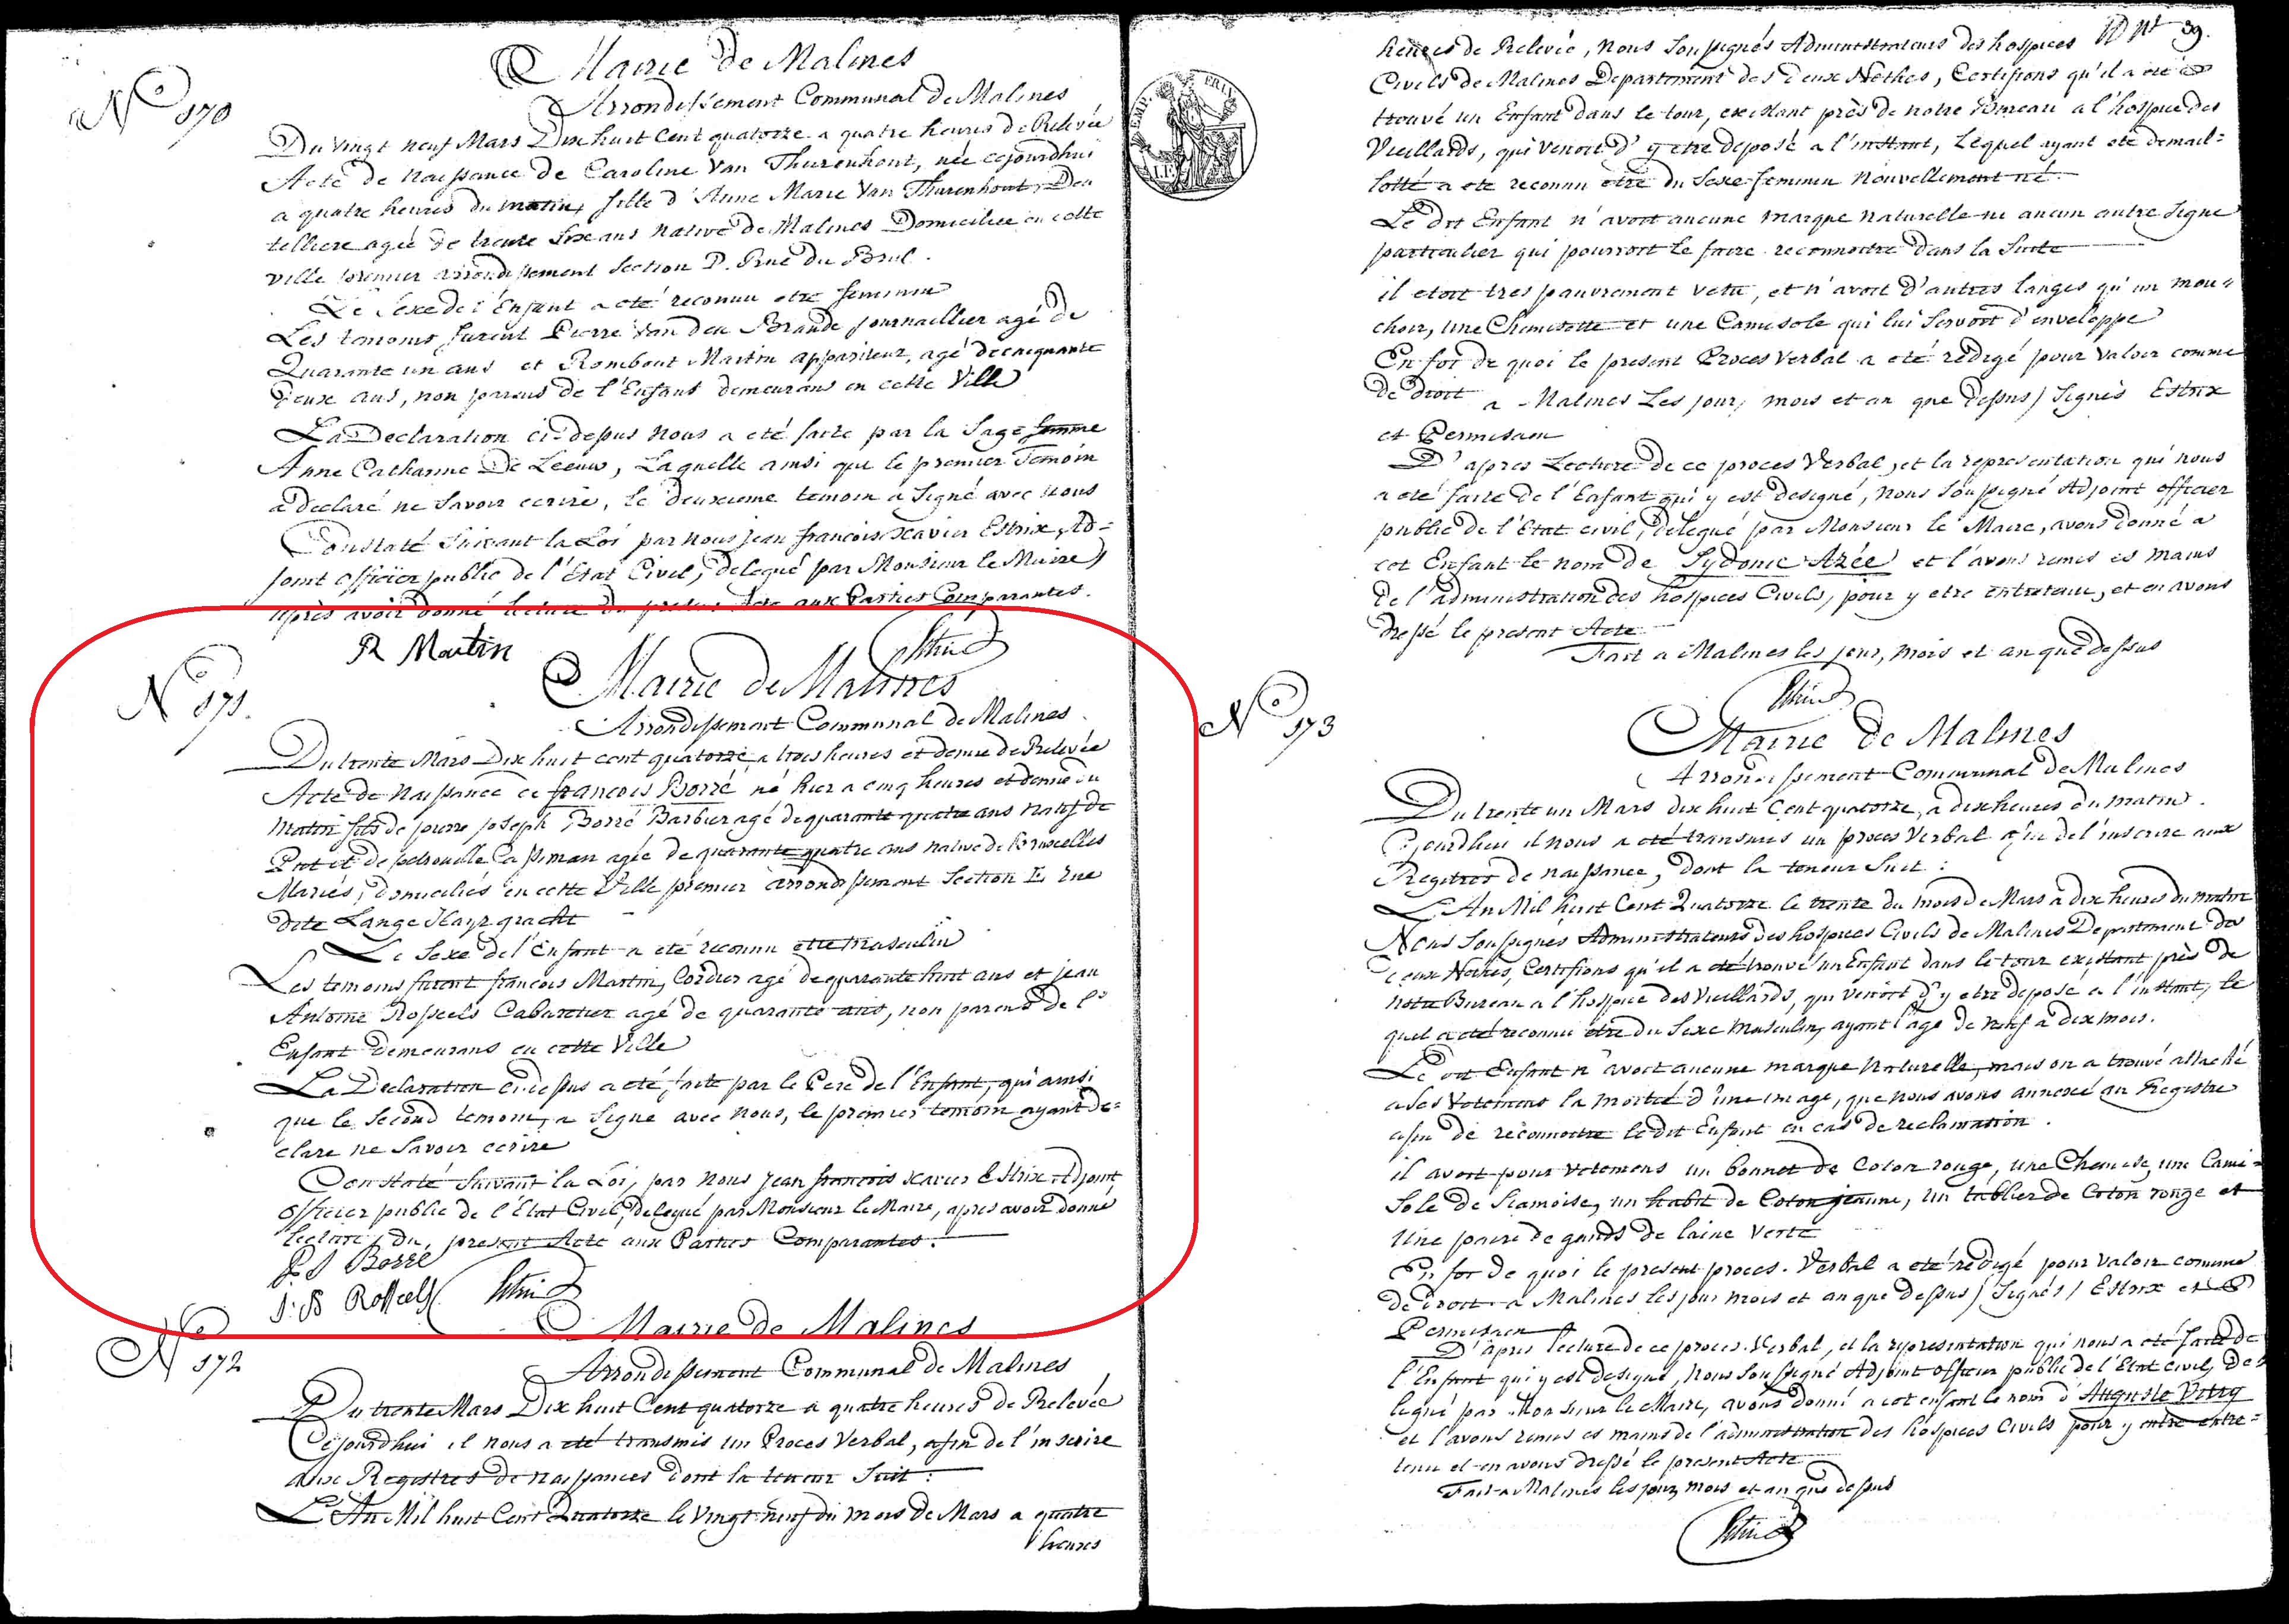 N° 170
Mairie de Malines
Arrondissement Communal de Malines
Du vingt neuf Mars Dix huit Cent quatorze a quatre heures de Relevée
Acte de naissance de Caroline Van Thurenhout, née cejourdhui
a quatre heures du matin, fille d'Anne Marie Van Thurenhout, Den
telliere agée de trente six ans native de Malines Domiciliée en cette
ville premier arrondissement Section D. Rue du Brul.
Le Sexe de l'Enfant a eté reconnu etre feminin
Les temoins furent Pierre Van den Brande journaillier agé de
Quarante un ans et Rombout Martin appariteur, agé de cinquante
deux ans, non parens de l'Enfant demeurans en cette Ville
La Declaration ci-dessus nous a eté faite par la Sage femme
Anne Catharine De Leeuw, Laquelle ainsi que le premier Temoin
a declaré ne Savoir ecrire, le deuxieme temoin a Signé avec nous
Constaté Suivant la Loi par nous jean francois Xavier Estrix, Ad=
joint officier public de l'Etat Civil, delegué par Monsieur le Maire,
après avoir donné lecture du present Acte aux Parties Comparantes.
R Martin
N° 171.
Mairie de Malines
Arrondissement Communal de Malines
Du trente Mars Dix huit cent quatorze, a trois heures et demie de Relevée
Acte de Naissance de francois Borré né hier a cinq heures et demie du
matin fils de pierre joseph Borré Barbier agé de quarante quatre ans natif de
et de petronille agée de quarante quatre ans native de Bruxelles
Mariés, domiciliés en cette Ville premier arrondissement Section E rue
dite Lange gracht
Le Sexe de l'Enfant a eté reconnu etre masculin
Les temoins furent francois Martin, Cordier agé de quarante huit ans et jean
Antoine Rosseels Cabaretier agé de quarante ans, non parens de l'
Enfant demeurans en cette Ville
La Declaration ci-dessus a eté faite par le Pere de l'Enfant, qui ainsi
que le Second temoin, a Signé avec nous, le premier temoin ayant de=
claré ne Savoir ecrire
Constaté Suivant la Loi, par nous jean francois xavier Estrix Adjoint
officier public de l'Etat Civil, delegué par Monsieur le Maire, apres avoir donné
lecture du present Acte aux Parties Comparantes.
P. J Borré
J: B Rosseels
N° 172
Mairie de Malines
Arrondissement Communal de Malines
Du trente Mars Dix huit Cent quatorze a quatre heures de Relevée
Cejourdhui il nous a eté transmis un Proces Verbal, afin de l'inscrire
aux Registres de naissances dont la teneur Suit:
L'An Mil huit Cent Quatorze le Vingt-neuf du mois de Mars a quatre
heures
39.
heures de Relevée, nous Soussignés Administrateurs des hospices
Civils de Malines Departement des deux Nethes, Certifions qu'il a eté
trouvé un Enfant dans le tour, existant près de notre Bureau a l'hospice des
Vieillards, qui venoit d'y etre deposé a l'instant, Lequel ayant eté demail=
lotté a eté reconnu etre du Sexe feminin Nouvellement né.
Le dit Enfant n'avoit aucune marque naturelle ni aucun autre Signe
particulier qui pourroit le faire reconnoitre dans la Suite
il etoit tres pauvrement vetu, et n'avoit d'autres langes qu'un mou=
choir, une Chemisette et une Camisole qui lui Servoit d'enveloppe
En foi de quoi le present Proces Verbal a eté redigé pour valoir comme
de droit a Malines Les jour, mois et an que dessus / Signés Estrix
et
D'apres Lecture de ce proces Verbal, et la representation qui nous
a eté faite de l'Enfant qui y est designé, nous Soussigné Adjoint officier
public de l'Etat civil, delegué par Monsieur le Maire, avons donné a
cet Enfant le nom de Sydonie Azée et l'avons remis es mains
de l'administration des hospices Civils, pour y etre entretenu, et en avons
dressé le present Acte
Fait a Malines les jour, mois et an que dessus
EMP.
N° 173
Mairie de Malines
Arrondissement Communal de Malines
Du trente un Mars dix huit Cent quatorze, a dix heures du matin.
Cejourdhui il nous a eté transmis un proces Verbal afin de l'inscrire aux
Registres de naissance, dont la teneur Suit:
L'An Mil huit Cent Quatorze le trente du mois de Mars a dix heures du matin
Nous Soussignés Administrateurs des hospices Civils de Malines Departement des
deux Nethes, Certifions qu'il a eté trouvé un Enfant dans le tour existant près de
notre Bureau a l'hospice des Vieillards, qui venoit d'y etre deposé a l'instant, le
quel a eté reconnu etre du Sexe masculin, ayant l'age de neuf a dix mois.
Le dit Enfant n'avoit aucune marque naturelle, mais on a trouvé attaché
a Ses Vetemens la moitié d'une image, que nous avons annexé au Registre
afin de reconnoitre le dit Enfant en cas de reclamation.
il avoit pour vetemens un bonnet de Coton rouge, une Chemise, une Cami=
Sole de Siamoise, un habit de Coton jeaune, un tablier de Coton rouge et
Une paire de gands de laine verte
En foi de quoi le present proces-Verbal a eté redigé pour valoir comme
de droit a Malines les jour mois et an que dessus / Signés / Estrix et
D'apres lecture de ce proces-Verbal, et la representation qui nous a eté faite de
l'Enfant qui y est designé, nous Soussigné Adjoint officier public de l'Etat civil, de=
legué par Monsieur le Maire, avons donné a cet enfant le nom d'Auguste Vitry
et l'avons remis es mains de l'administration des hospices Civils pour y etre entre=
tenu et en avons dressé le present Acte
Fait a Malines les jour, mois et an que dessus